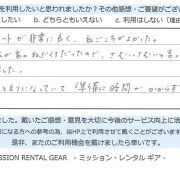 を利用したいと思われましたか？その他感想・ご要望がござい
たい　b. どちらともいえない　c. 利用はしない（理由
ートが非常に良く、ねごこちがよかった。
が家のねぶくろだったので、さむいさむいと言っ
ました。
とまりになっていて準備に時間がかからず
した。戴いたご感想・意見を大切に今後のサービス向上に活
になる方への参考の為、当HP上で利用させて戴くことがございます
是非、またのご利用機会を戴けましたら幸いです。
SSION RENTAL GEAR - ミッション・レンタル ギア -